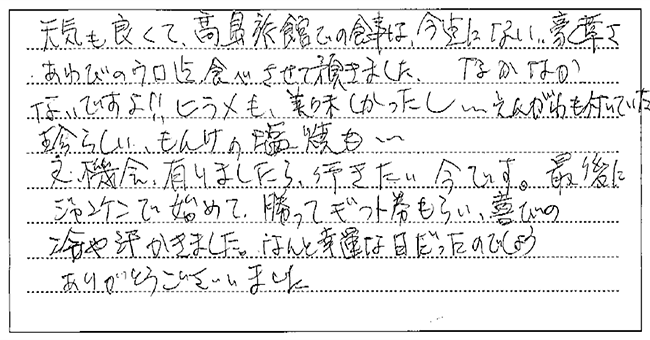 天気も良くて、高島旅館での食事は、今までにない豪華さ
あわびのウロ迄食べさせて頂きました。 なかなか
ないですよ!! ヒラメも、美味しかったし〜えんがわも付いていた
珍らしい、もんけの塩焼も〜
又、機会、有りましたら、行きたい今です。最後に
ジャンケンで始めて、勝ってギフト券もらい、喜びの
冷や汗かきました。なんと幸運な日だったのでしょう
ありがとうございました